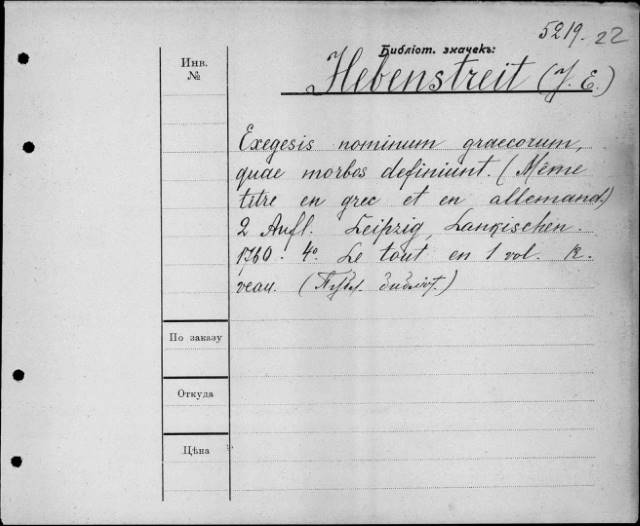 5219.22
Библіот. значекъ:
Инв.
№
Hebenstreit (J. E.)
Exegesis nominum graecorum,
quae morbos definiunt. (Même
titre en grec et en allemand.)
2 Aufl. Leipzig, Lankischen.
1760. 4º Le tout en 1 vol. R.
veau. (Публ. библіот.)
По заказу
Откуда
Цѣна